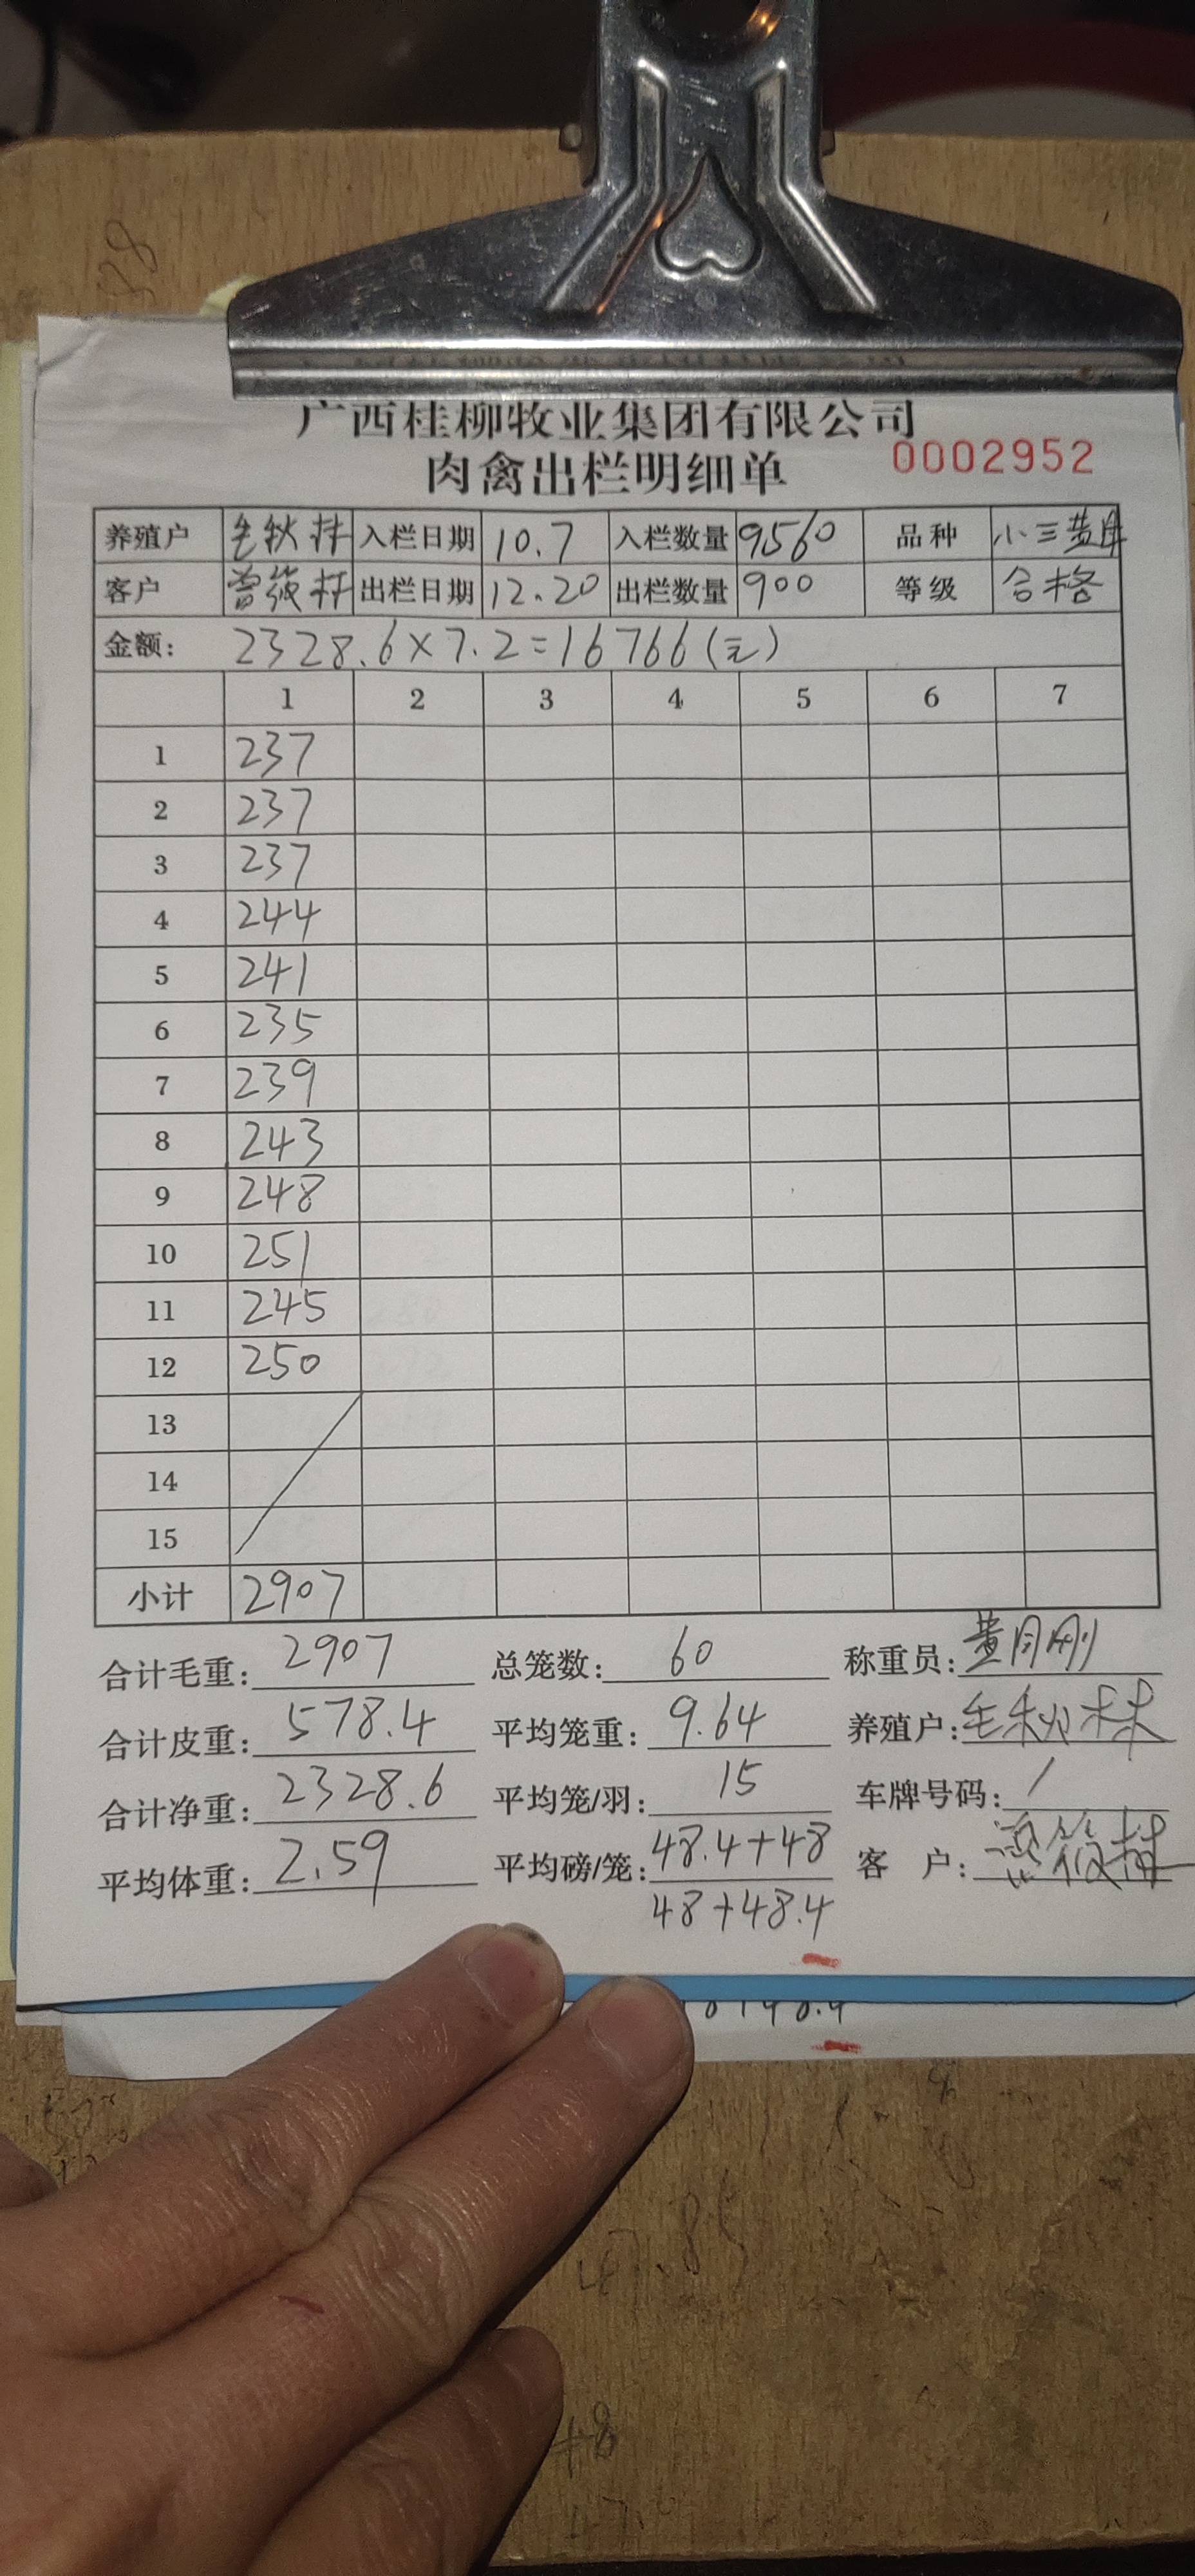 广西桂柳牧业集团有限公司
肉禽出栏明细单 0002952
养殖户 毛秋林 入栏日期 10.7 入栏数量 9560 品种 小三黄
客户 出栏日期 12.20 出栏数量 900 等级 合格
金额: 2328.6×7.2=16766(元)
1 2 3 4 5 6 7
1 237
2 237
3 237
4 244
5 241
6 235
7 239
8 243
9 248
10 251
11 245
12 250
13
14
15
小计 2907
合计毛重: 2907 总笼数: 60 称重员: 黄月刚
合计皮重: 578.4 平均笼重: 9.64 养殖户: 毛秋林
合计净重: 2328.6 平均笼/羽: 15 车牌号码: /
平均体重: 2.59 平均磅/笼: 48.4+48 客 户:
48+48.4